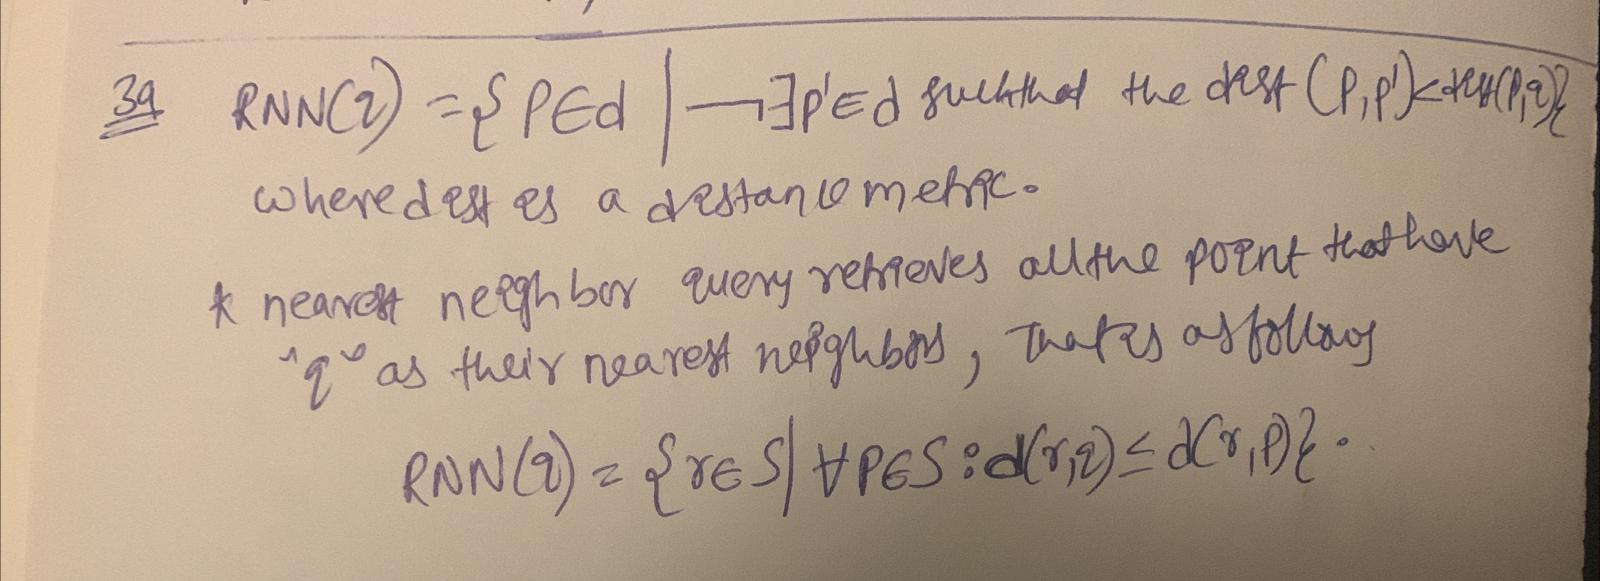 3a RNN(q) = { P∈d | ¬∃p'∈d such that the dist (P,p')<dist(P,q)}
where dist is a distance metric.
* nearest neighbor query retrieves all the point that have
"q" as their nearest neighbors, That is as follows
RNN(q) = {r∈S| ∀P∈S : d(r,q) ≤ d(r,p)}.